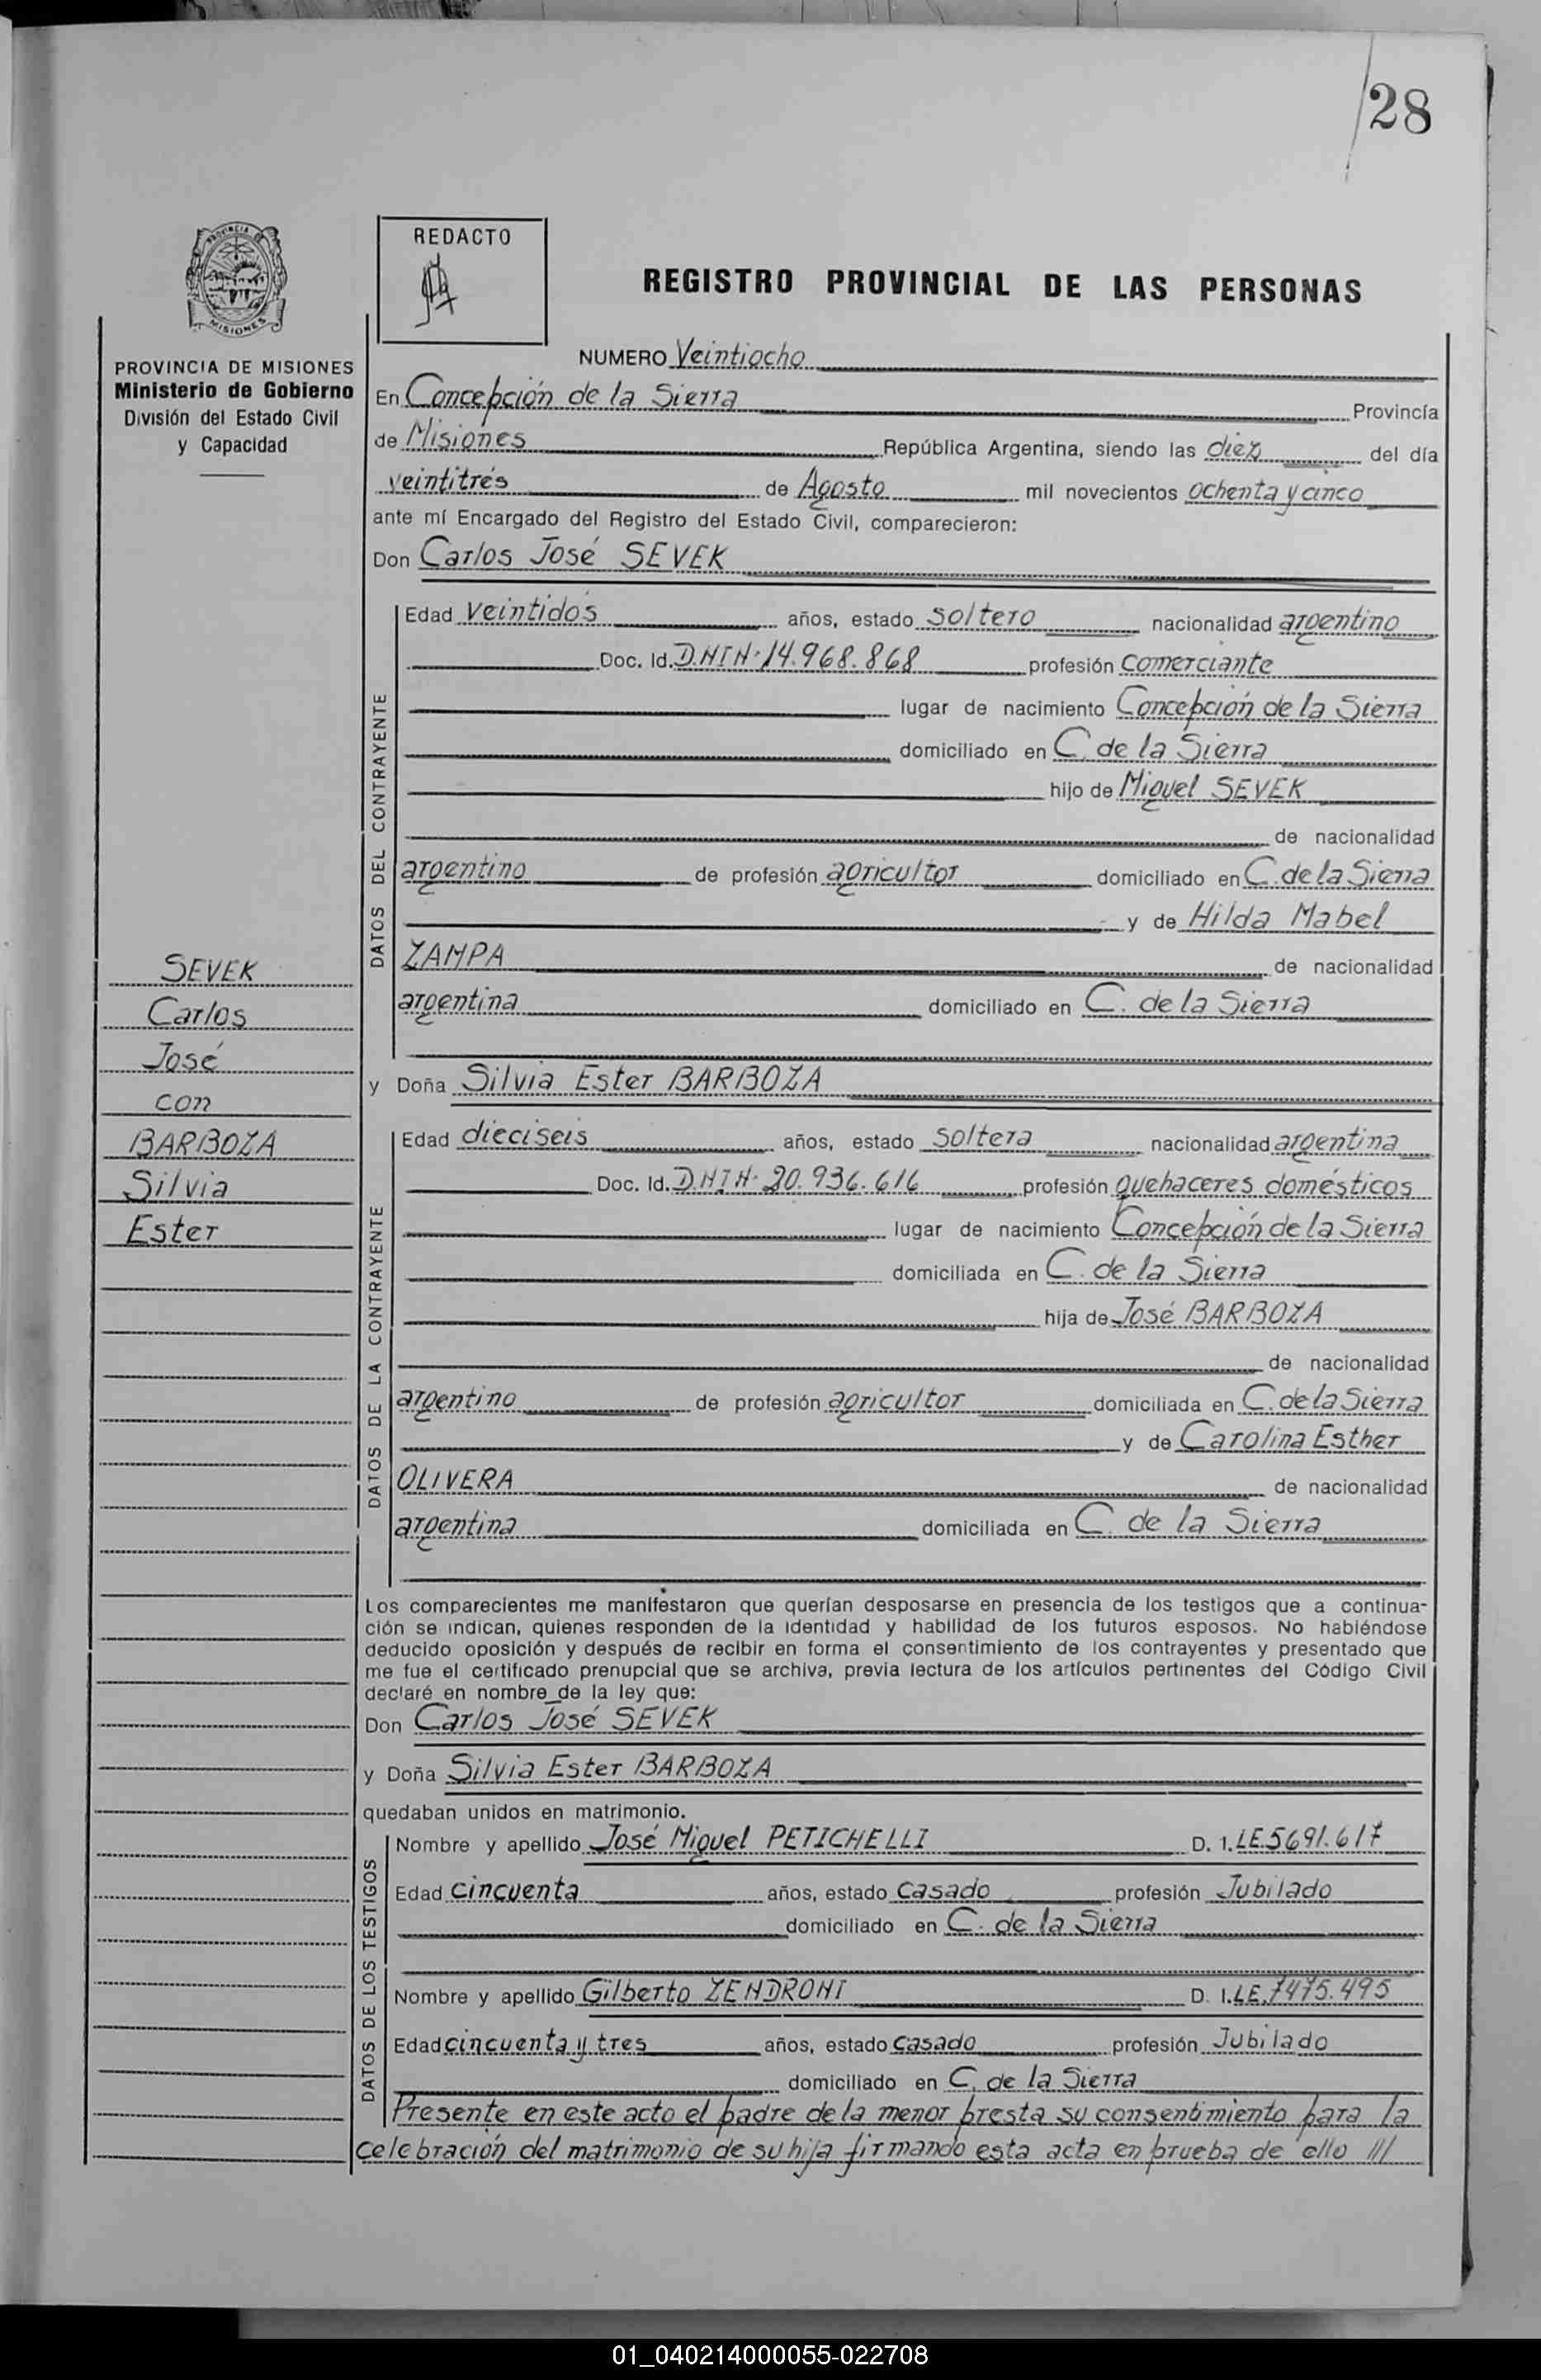 28
PROVINCIA DE
MISIONES
REDACTO
REGISTRO PROVINCIAL DE LAS PERSONAS
PROVINCIA DE MISIONES
Ministerio de Gobierno
División del Estado Civil
y Capacidad
NUMERO Veintiocho
En Concepción de la Sierra Provincia
de Misiones República Argentina, siendo las diez del día
veintitrés de Agosto mil novecientos ochenta y cinco
ante mí Encargado del Registro del Estado Civil, comparecieron:
Don Carlos José SEVEK
DATOS DEL CONTRAYENTE
Edad veintidós años, estado soltero nacionalidad argentino
Doc. Id. D.N.I.N. 14.968.868 profesión comerciante
lugar de nacimiento Concepción de la Sierra
domiciliado en C. de la Sierra
hijo de Miguel SEVEK
de nacionalidad
argentino de profesión agricultor domiciliado en C. de la Sierra
y de Hilda Mabel
ZAMPA de nacionalidad
argentina domiciliado en C. de la Sierra
SEVEK
Carlos
José
con
BARBOZA
Silvia
Ester
y Doña Silvia Ester BARBOZA
DATOS DE LA CONTRAYENTE
Edad dieciseis años, estado soltera nacionalidad argentina
Doc. Id. D.N.I.N. 20.936.616 profesión quehaceres domésticos
lugar de nacimiento Concepción de la Sierra
domiciliada en C. de la Sierra
hija de José BARBOZA
de nacionalidad
argentino de profesión agricultor domiciliada en C. de la Sierra
y de Carolina Esther
OLIVERA de nacionalidad
argentina domiciliada en C. de la Sierra
Los comparecientes me manifestaron que querían desposarse en presencia de los testigos que a continua-
ción se indican, quienes responden de la identidad y habilidad de los futuros esposos. No habiéndose
deducido oposición y después de recibir en forma el consentimiento de los contrayentes y presentado que
me fue el certificado prenupcial que se archiva, previa lectura de los artículos pertinentes del Código Civil
declaré en nombre de la ley que:
Don Carlos José SEVEK
y Doña Silvia Ester BARBOZA
quedaban unidos en matrimonio.
DATOS DE LOS TESTIGOS
Nombre y apellido José Miguel PETICHELLI D. I. LE.5691.617
Edad cincuenta años, estado casado profesión Jubilado
domiciliado en C. de la Sierra
Nombre y apellido Gilberto ZENDRONI D. I. LE.7475.495
Edad cincuenta y tres años, estado casado profesión Jubilado
domiciliado en C. de la Sierra
Presente en este acto el padre de la menor presta su consentimiento para la
celebración del matrimonio de su hija firmando esta acta en prueba de ello ///
01_040214000055-022708